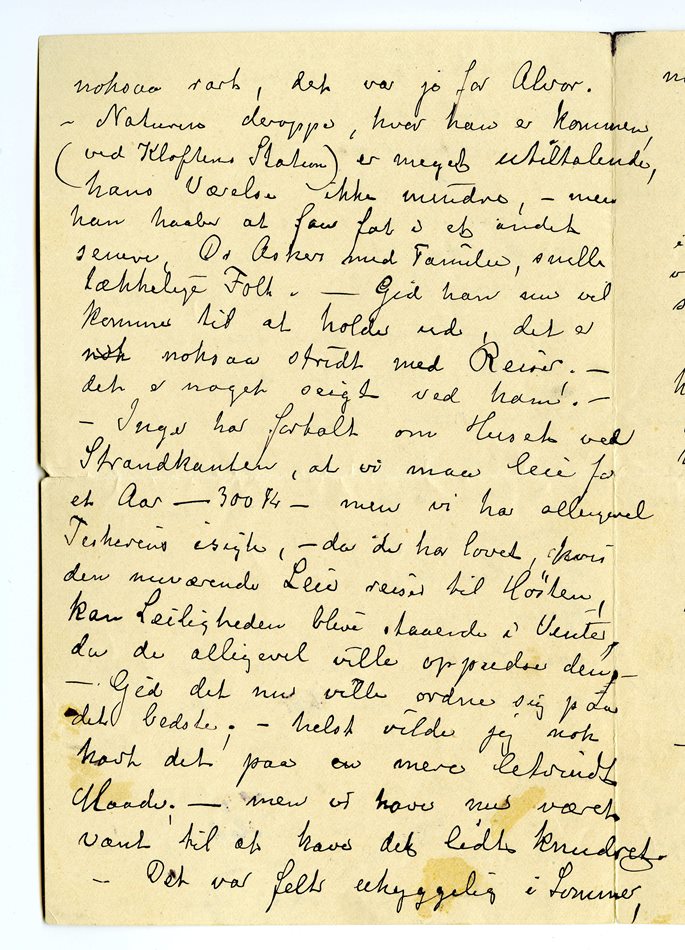 noksaa rart, det var jo for Alvor.
- Naturen deroppe, hvor han er kommen,
(ved Kløftens Station) er meget utiltalende,
hans Værelse ikke mindre, - men
han haaber at faa fat i et andet
senere, Dr Askers med Familie, snille
tækkelige Folk. - Gid han nu vil
komme til at holde ud, det er
nok noksaa stridt med Reiser. -
det er noget seigt ved ham! -
- Inger har fortalt om Huset ved
Strandkanten, at vi maa leie for
et Aar - 300 Kr - men vi har alligevel
isigte, - da de har lovet, hvis
den nuværende Leier reiser til Høsten,
kan Leiligheden blive staaende i Vinter,
da de alligevel ville oppudse den, -
- Gid det nu ville ordne sig paa
det bedste; - helst vilde jeg nok
havt det paa en mere letvindt
Maade; - men vi have nu været
vant til at have det lidt knudret.
- Det var felt uhyggelig i Sommer,